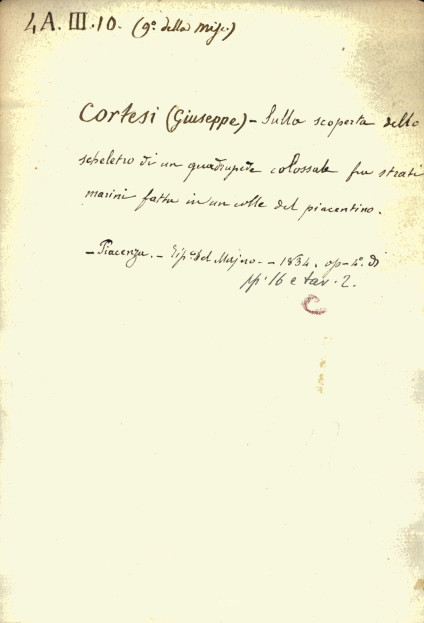 4A. III. 10. (9º. della Misc.)
Cortesi (Giuseppe) - Sulla scoperta dello
scheletro di un quadrupede colossale fra strati
marini fatta in un colle del piacentino.
- Piacenza. - Tip. del Majno. - 1834. op - 4º. di
pp. 16 e tav. 2.
C